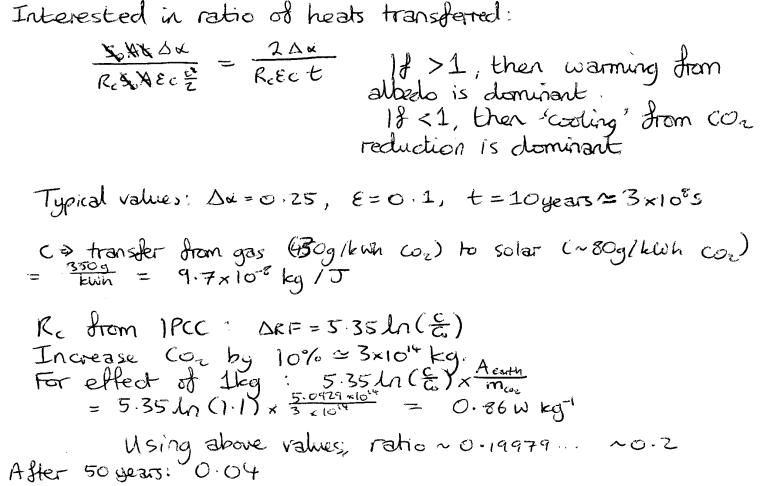 Interested in ratio of heats transferred:
S₀At Δα / R꜀S₀A ε c t²/2 = 2Δα / R꜀ε c t
If >1, then warming from
albedo is dominant.
If <1, then 'cooling' from CO₂
reduction is dominant
Typical values: Δα = 0.25, ε = 0.1, t = 10 years ≃ 3×10⁸s
C ⇒ transfer from gas (430g/kWh CO₂) to solar (~80g/kWh CO₂)
= 350g/kWh = 9.7×10⁻⁸ kg/J
R꜀ from IPCC : ΔRF = 5.35 ln(C/C₀)
Increase CO₂ by 10% ≃ 3×10¹⁴ kg.
For effect of 1kg : 5.35 ln(C/C₀) × A earth/m CO₂
= 5.35 ln(1.1) × 5.0929×10¹⁴/3×10¹⁴ = 0.86 W kg⁻¹
Using above values, ratio ~ 0.19979... ~0.2
After 50 years: 0.04